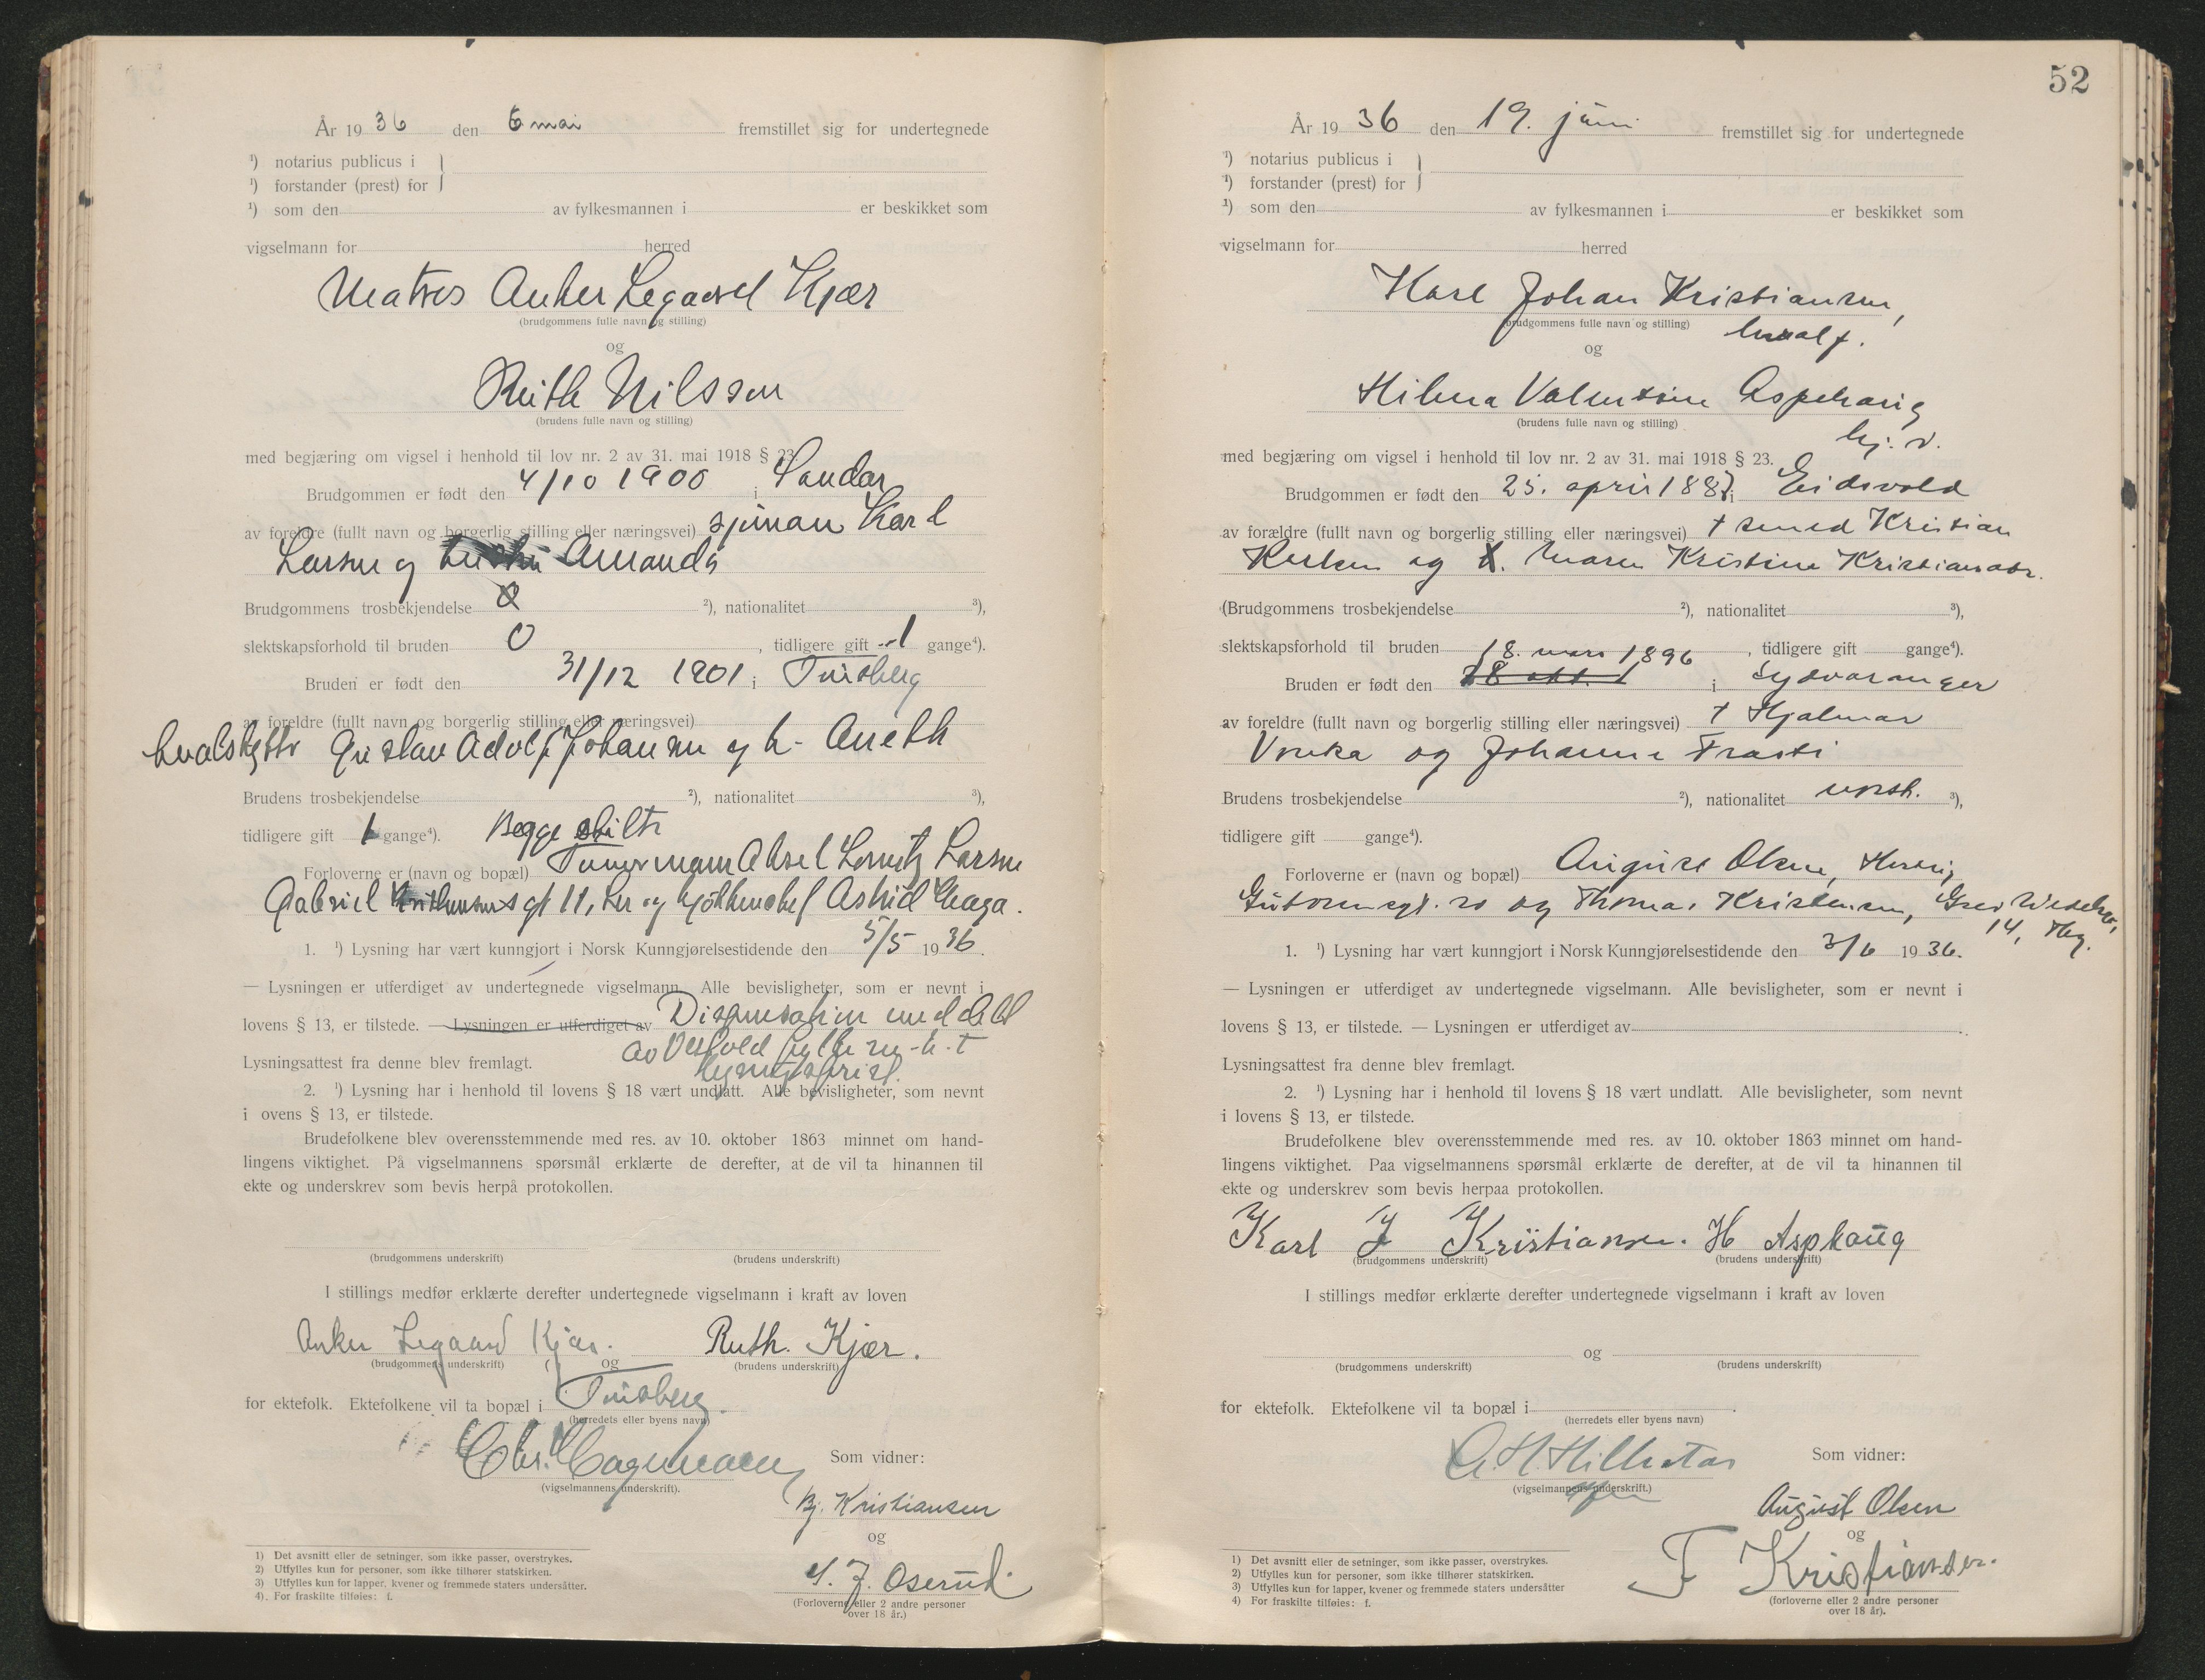 År 1936 den 6 mai fremstillet sig for undertegnede
¹) notarius publicus i
¹) forstander (prest) for
¹) som den av fylkesmannen i er beskikket som
vigselmann for herred
Anker Legaard Kjær
(brudgommens fulle navn og stilling)
og
Ruth Nilssen
(brudens fulle navn og stilling)
med begjæring om vigsel i henhold til lov nr. 2 av 31. mai 1918 § 23.
Brudgommen er født den 4/10 1900 i Sandar
av foreldre (fullt navn og borgerlig stilling eller næringsvei) sjømann Karl
Larsen og Amanda
Brudgommens trosbekjendelse ²), nationalitet ³),
slektskapsforhold til bruden 0, tidligere gift 1 gange⁴).
Bruden er født den 31/12 1901 i Tønsberg
av foreldre (fullt navn og borgerlig stilling eller næringsvei)
hvalskytter Gustav Adolf Johansen og h. Aneth
Brudens trosbekjendelse ²), nationalitet ³),
tidligere gift 1 gange⁴). Begge skilte
Forloverne er (navn og bopæl) Tømmermann Aksel Larsen
Gabriel gt 11, her og Astrid Haga.
1. ¹) Lysning har vært kunngjort i Norsk Kunngjørelsestidende den 5/5 1936.
— Lysningen er utferdiget av undertegnede vigselmann. Alle bevisligheter, som er nevnt i
lovens § 13, er tilstede. — Lysningen er utferdiget av Dispensasjon meddelt
av Vestfold fylke m.h.t
Lysningsattest fra denne blev fremlagt. lysningsfrist.
2. ¹) Lysning har i henhold til lovens § 18 vært undlatt. Alle bevisligheter, som nevnt
i ovens § 13, er tilstede.
Brudefolkene blev overensstemmende med res. av 10. oktober 1863 minnet om hand-
lingens viktighet. På vigselmannens spørsmål erklærte de derefter, at de vil ta hinannen til
ekte og underskrev som bevis herpå protokollen.
(brudgommens underskrift) (brudens underskrift)
I stillings medfør erklærte derefter undertegnede vigselmann i kraft av loven
Anker Legaard Kjær. Ruth. Kjær.
(brudgommens underskrift) og (brudens underskrift)
for ektefolk. Ektefolkene vil ta bopæl i Tønsberg.
(herredets eller byens navn)
Chr. Hagemann Som vidner:
(vigselmannens underskrift).
Bj. Kristiansen
og
J. Oserud
(Forloverne eller 2 andre personer
over 18 år.)
1) Det avsnitt eller de setninger, som ikke passer, overstrykes.
2) Utfylles kun for personer, som ikke tilhører statskirken.
3) Utfylles kun for lapper, kvener og fremmede staters undersåtter.
4). For fraskilte tilføies: f.
52
År 1936 den 19. juni fremstillet sig for undertegnede
¹) notarius publicus i
¹) forstander (prest) for
¹) som den av fylkesmannen i er beskikket som
vigselmann for herred
Karl Johan Kristiansen,
(brudgommens fulle navn og stilling) hvalf.
og
Hilma Valentine Aspehaug
(brudens fulle navn og stilling) hj. v.
med begjæring om vigsel i henhold til lov nr. 2 av 31. mai 1918 § 23.
Brudgommen er født den 25. april 1887 i Eidsvold
av forældre (fullt navn og borgerlig stilling eller næringsvei) † smed Kristian
og Maren Kristine Kristiansdtr.
(Brudgommens trosbekjendelse ²), nationalitet ³),
slektskapsforhold til bruden , tidligere gift gange⁴).
18. mars 1896
Bruden er født den 28 okt. 1 i Sydvaranger
av foreldre (fullt navn og borgerlig stilling eller næringsvei) † Hjalmar
og Johanna Frasti
Brudens trosbekjendelse ²), nationalitet norsk. ³),
tidligere gift gange⁴).
Forloverne er (navn og bopæl) August Olsen,
Guttormsgt. 20 og Thomas Kristiansen, Grev Wedelsgt.
14, Tbg.
1. ¹) Lysning har vært kunngjort i Norsk Kunngjørelsestidende den 3/6 1936.
— Lysningen er utferdiget av undertegnede vigselmann. Alle bevisligheter, som er nevnt i
lovens § 13, er tilstede. — Lysningen er utferdiget av
Lysningsattest fra denne blev fremlagt.
2. ¹) Lysning har i henhold til lovens § 18 vært undlatt. Alle bevisligheter, som nevnt
i lovens § 13, er tilstede.
Brudefolkene blev overensstemmende med res. av 10. oktober 1863 minnet om hand-
lingens viktighet. Paa vigselmannens spørsmål erklærte de derefter, at de vil ta hinannen til
ekte og underskrev som bevis herpaa protokollen.
Karl J Kristiansen. H Asphaug
(brudgommens underskrift) (brudens underskrift)
I stillings medfør erklærte derefter undertegnede vigselmann i kraft av loven
og
(brudgommens underskrift) (brudens underskrift)
for ektefolk. Ektefolkene vil ta bopæl i
(herredets eller byens navn)
Som vidner:
(vigselmannens underskrift.)
August Olsen
og
T Kristiansen.
(forloverne eller 2 andre personer
over 18 år).
1) Det avsnitt eller de setninger, som ikke passer, overstrykes.
2) Utfylles kun for personer, som ikke tilhører statskirken.
3) Utfylles kun for lapper, kvener og fremmede staters undersåtter
4) For fraskilte tilføies: f.